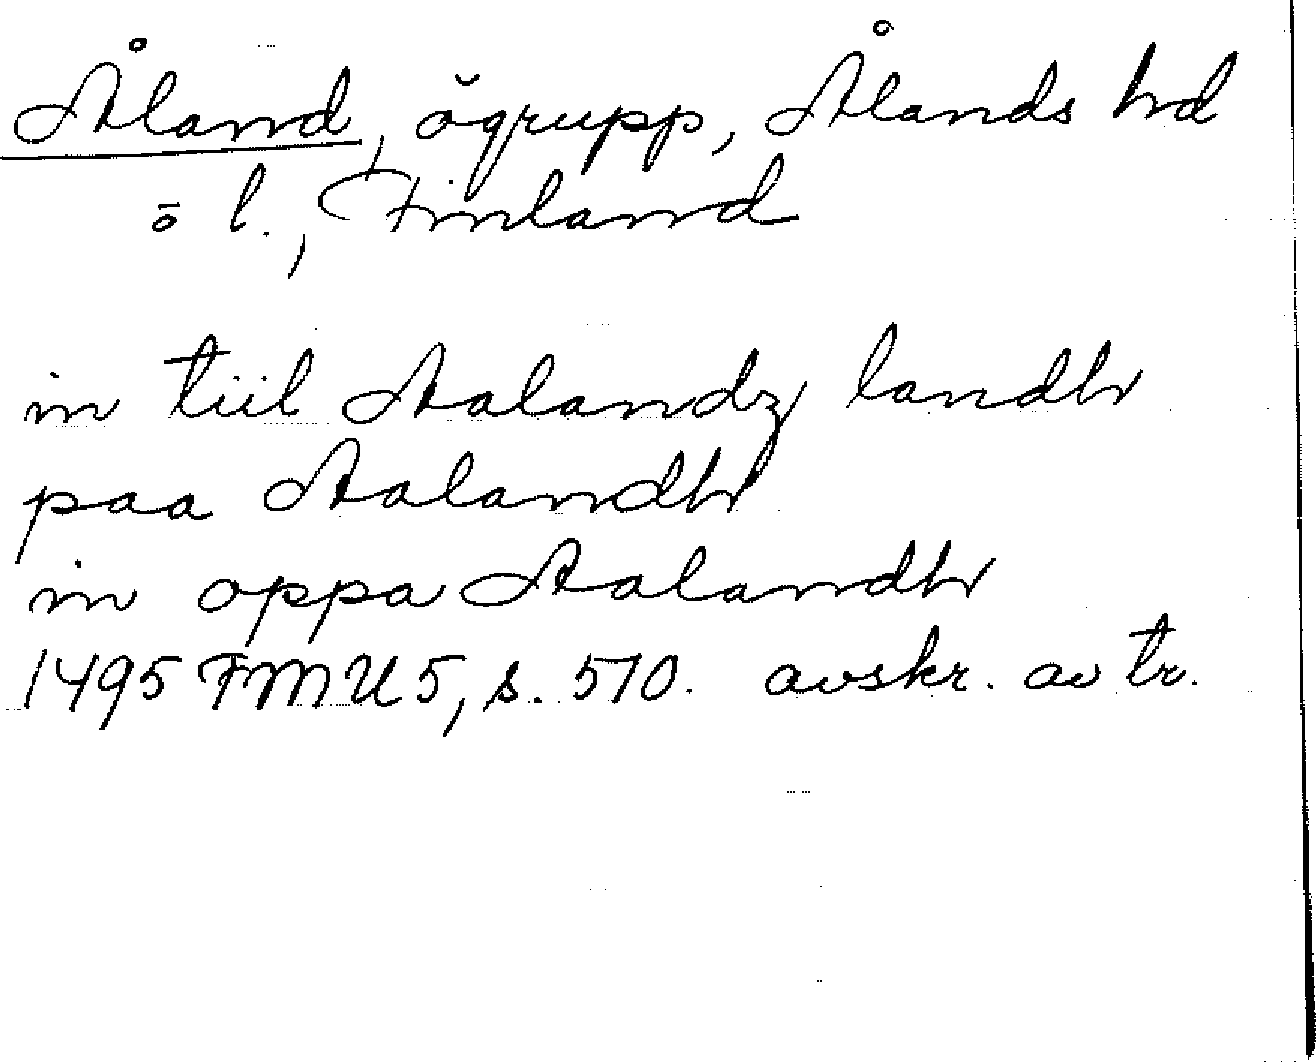 Åland, ögrupp, Ålands hd
ö l., Finland
in tiil Aalandz landh
paa Aalandh
in oppa Aalandh
1495 FMU 5, s. 510. avskr. av tr.